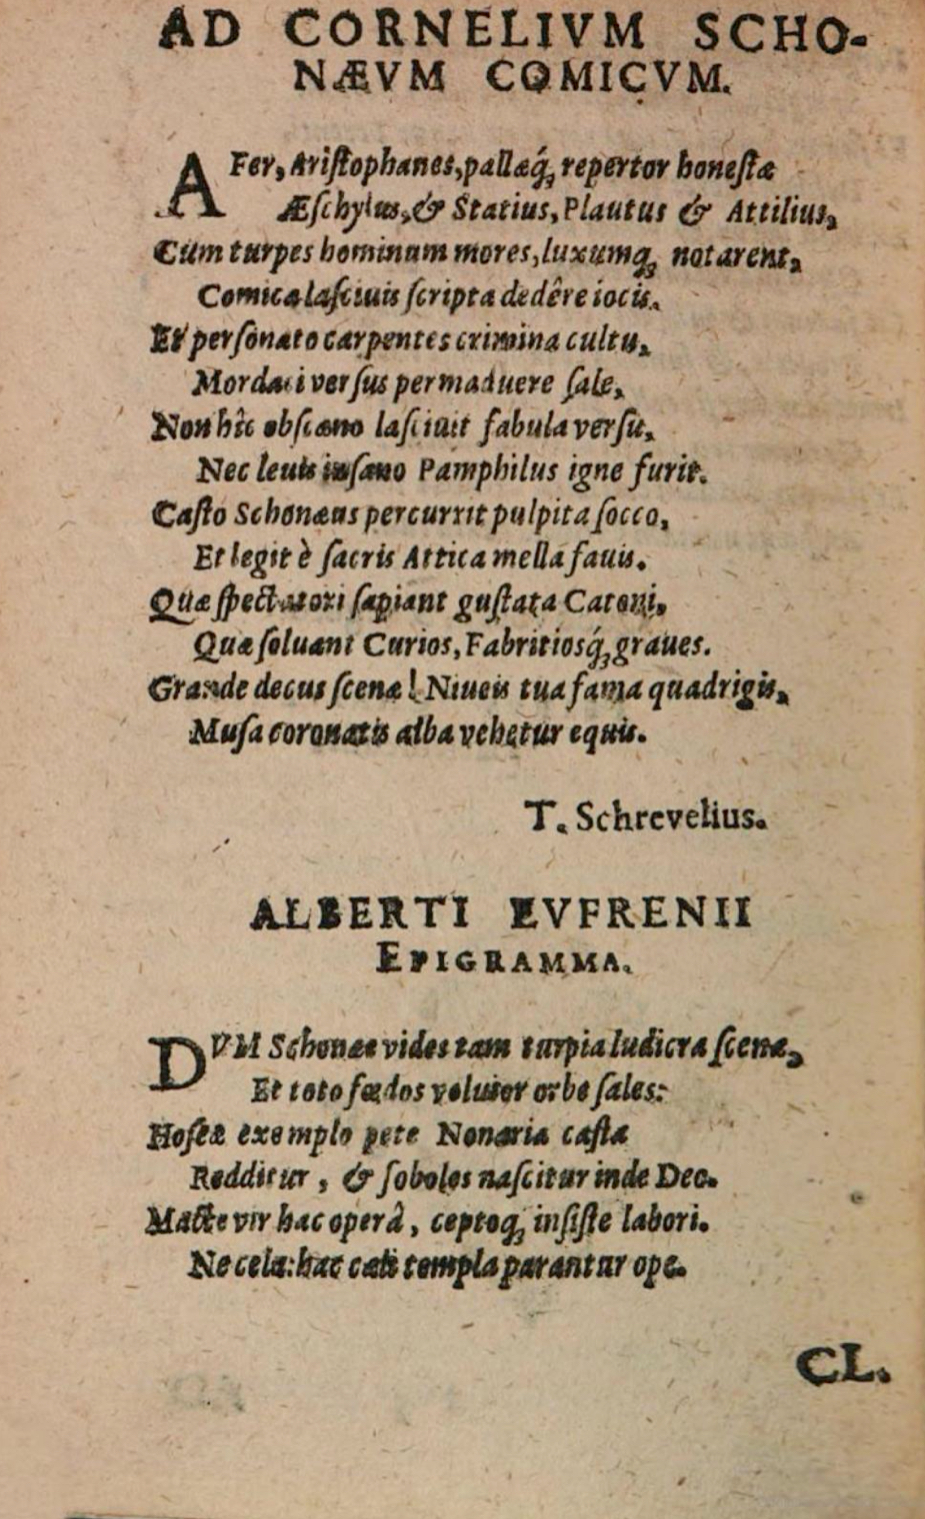 AD CORNELIVM SCHO-
NÆVM COMICVM.
AFer, Aristophanes, pallæq́; repertor honestæ
Æschylus, & Statius, Plautus & Attilius,
Cùm turpes hominum mores, luxumq; notarent,
Comica lasciuis scripta dedêre iocis.
Et personato carpentes crimina cultu,
Mordaci versus permaduere sale,
Non hîc obscæno lasciuit fabula versu,
Nec leuis insano Pamphilus igne furit.
Casto Schonæus percurrit pulpita socco,
Et legit è sacris Attica mella fauis.
Quæ spectatori sapiant gustata Catoni,
Quæ soluant Curios, Fabritiosq́; graues.
Grande decus scenæ! Niueis tua fama quadrigis,
Musa coronatis alba vehetur equis.
T. Schrevelius.
ALBERTI EVFRENII
EPIGRAMMA.
DVM Schonæe vides tam turpia ludicra scenæ,
Et toto fœdos voluier orbe sales:
Hoseæ exemplo pete Nonaria casta
Redditur, & soboles nascitur inde Deo.
Macte vir hac operâ, ceptoq; insiste labori.
Ne cela: hac cæli templa parantur ope.
CL.